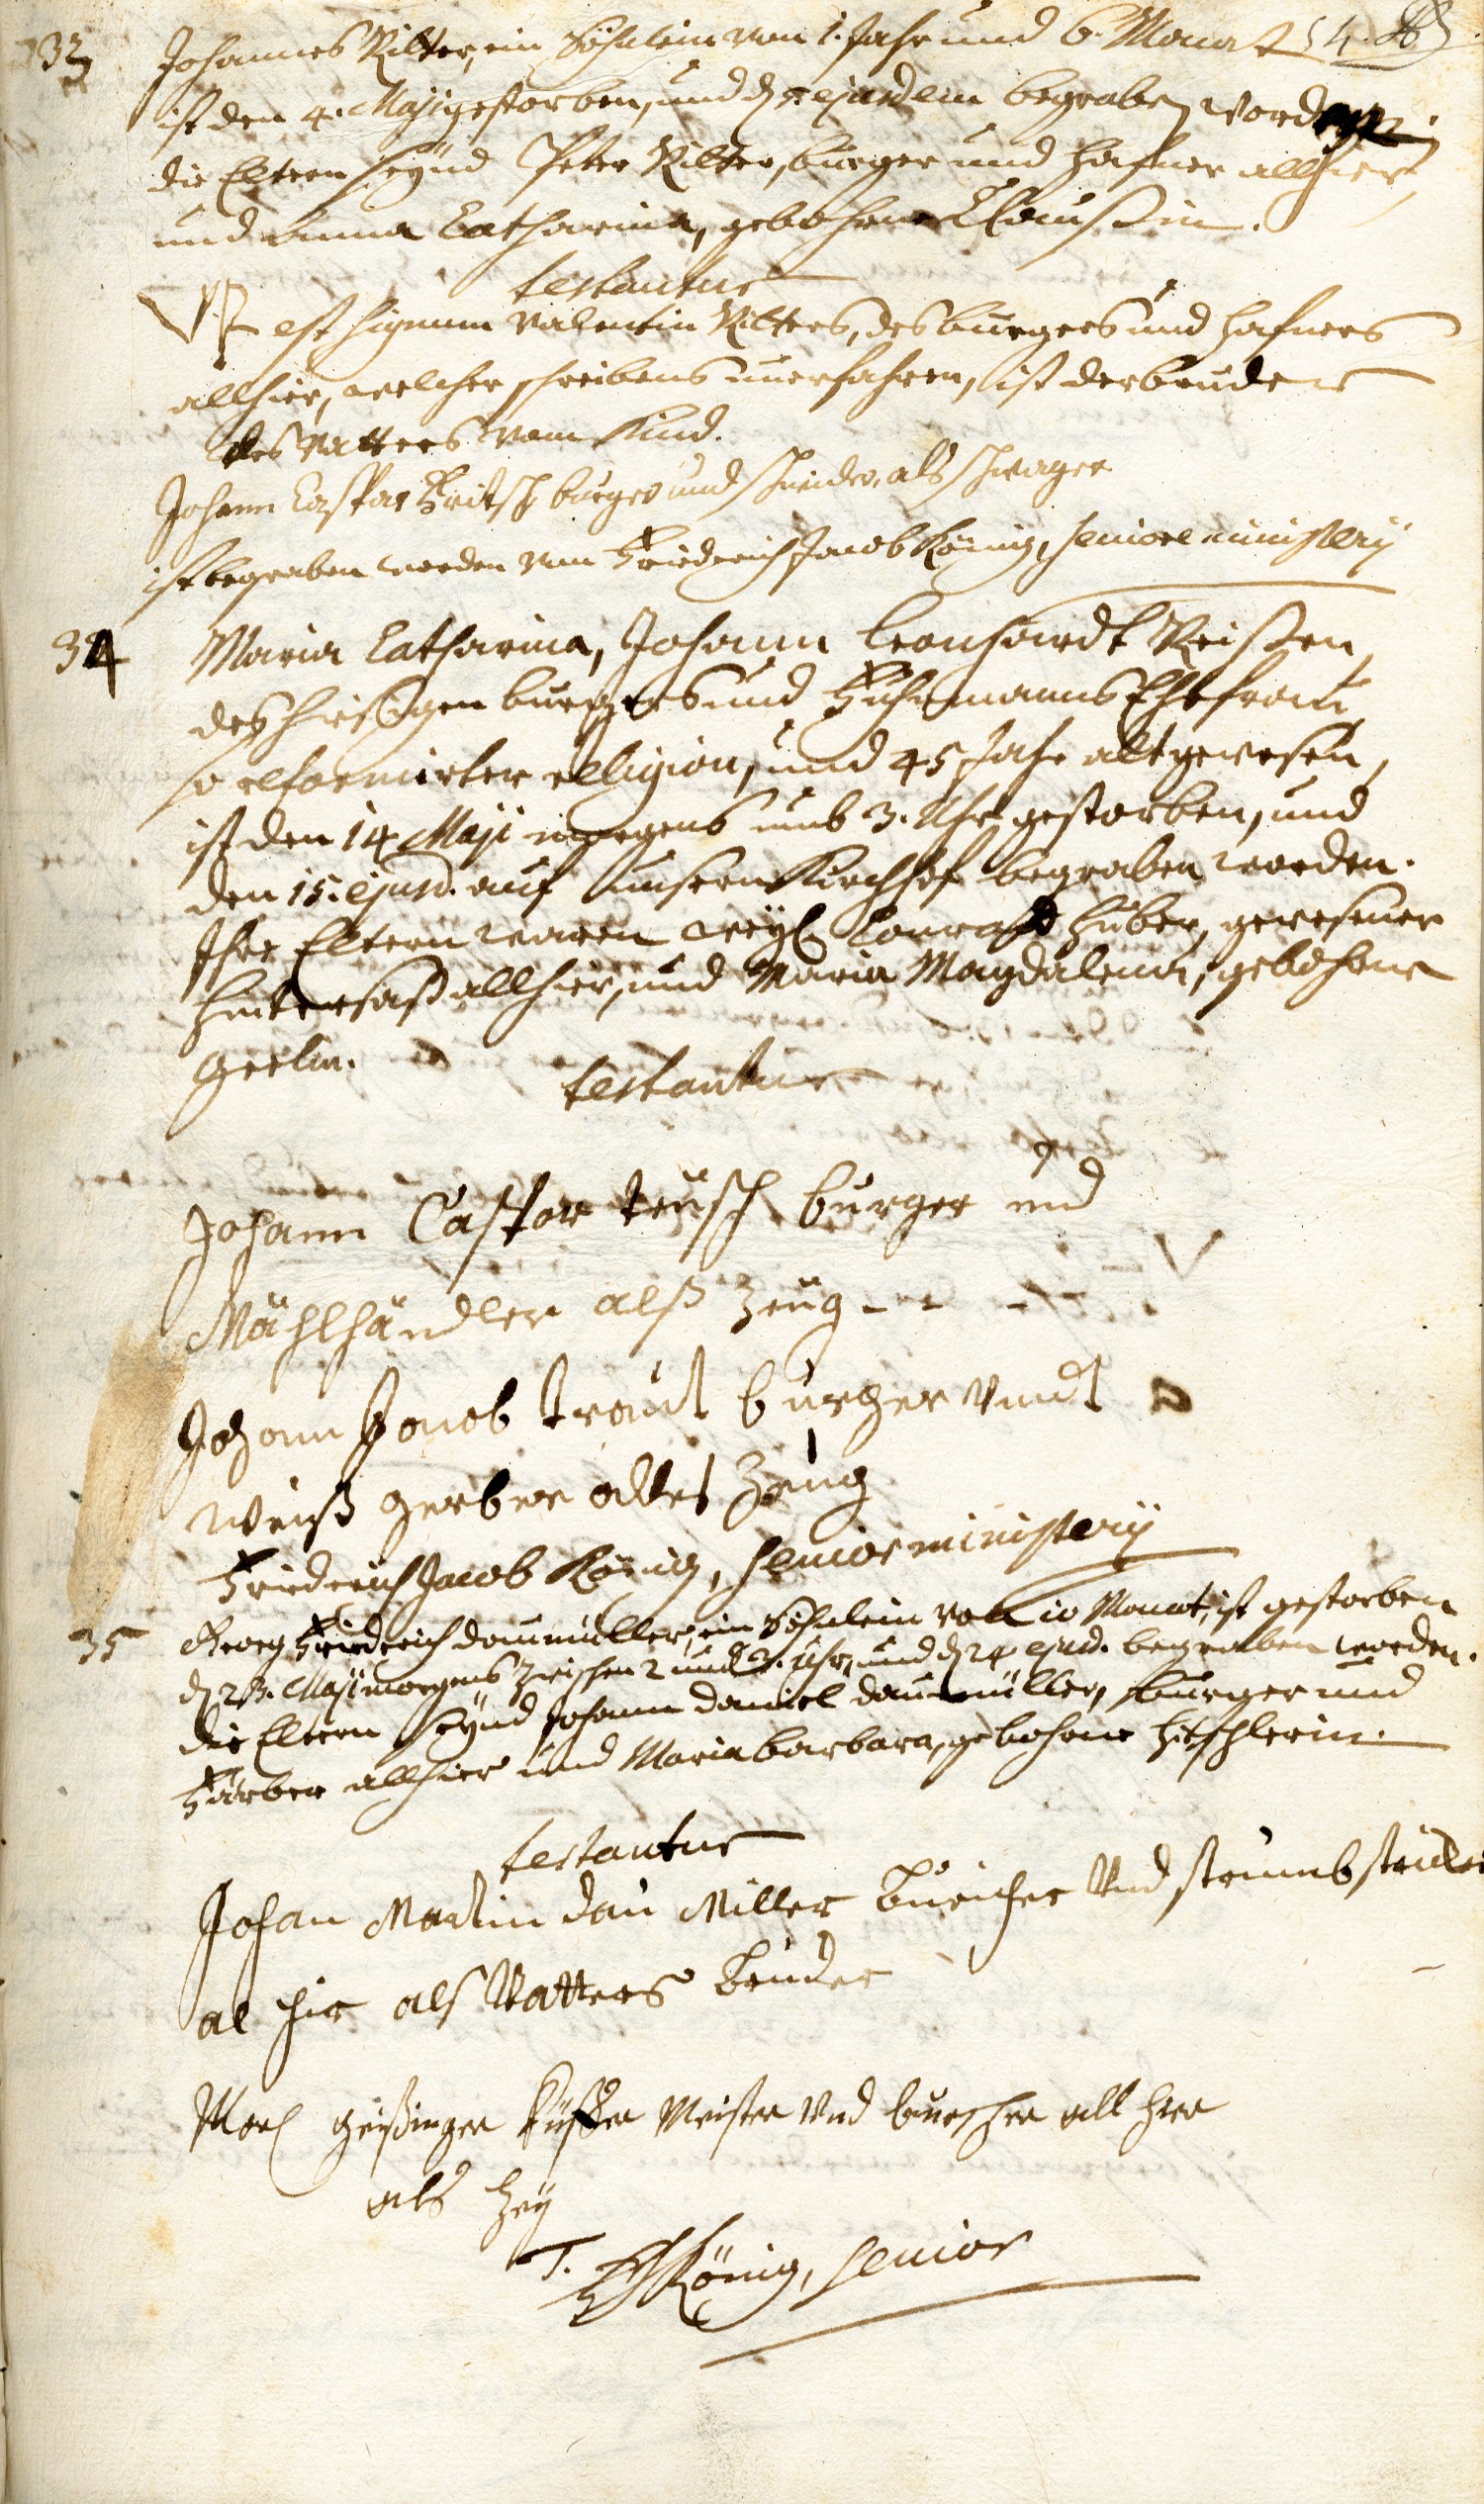 33 Johannes Ritter, ein Söhnlein von 1. Jahr und 6. Monat
ist den 4. Maji gestorben, und d. 5. ejusdem begraben worden.
die Eltern seynd Peter Ritter, burger und Hafner allhier,
und Anna Catharina, gebohrne Claußin.
testantur
VR est signum Valentin Ritters, des burgers und Hafners
allhier, welcher schreibens unerfahren, ist der bruder
des Vatters vom Kind.
Johann Caspar Fritsch burger und schneider, als schwager
ist begraben worden von Friderich Jacob König, seniore ministerij
34 Maria Catharina, Johann Leonhardt Reißen,
des hiesigen burgers und Fuhrmanns Ehefrau,
so reformirter religion, und 45 Jahr alt gewesen,
ist den 14 Maji morgens umb 3. Uhr gestorben, und
den 15. ejusd. auf unsern Kirchhof begraben worden.
Ihre Eltern waren weyl. Conradt Huber, gewesener
Hintersaß allhier, und Maria Magdalena, gebohrne
testantur
Johann Castor Teusch burger und
Mählhändler alß Zeug
Johann Jacob Traut burger vndt
weiß gerber alles Zeug
Friderich Jacob König, senior ministerij
35 Georg Friderich Daumüller, ein Söhnlein von 10 Monat, ist gestorben
d. 23. Maji morgens zwischen 2 und 3. Uhr, und d. 24 ejusd. begraben worden.
die Eltern seynd Johann Daniel Daumüller, burger und
Färber allhier und Maria Barbara, gebohrne Hitschlerin.
testantur
Johan Martin Dau Miller Buricher Vnd strumbstricker
al hir als Vatters Bruder
geißinger Küffer Meister Vnd burscher all hier
als Zeÿ
T. FJKönig, senior